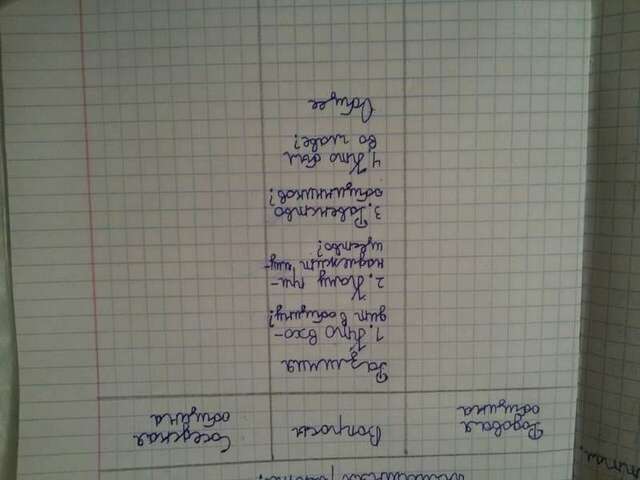 Родовая
община
Вопросы
Соседская
община
Различия
1. Кто вхо-
дит в общину?
2. Кому при-
надлежит иму-
щество?
3. Равенство
общинников?
4. Кто был
во главе?
Общее